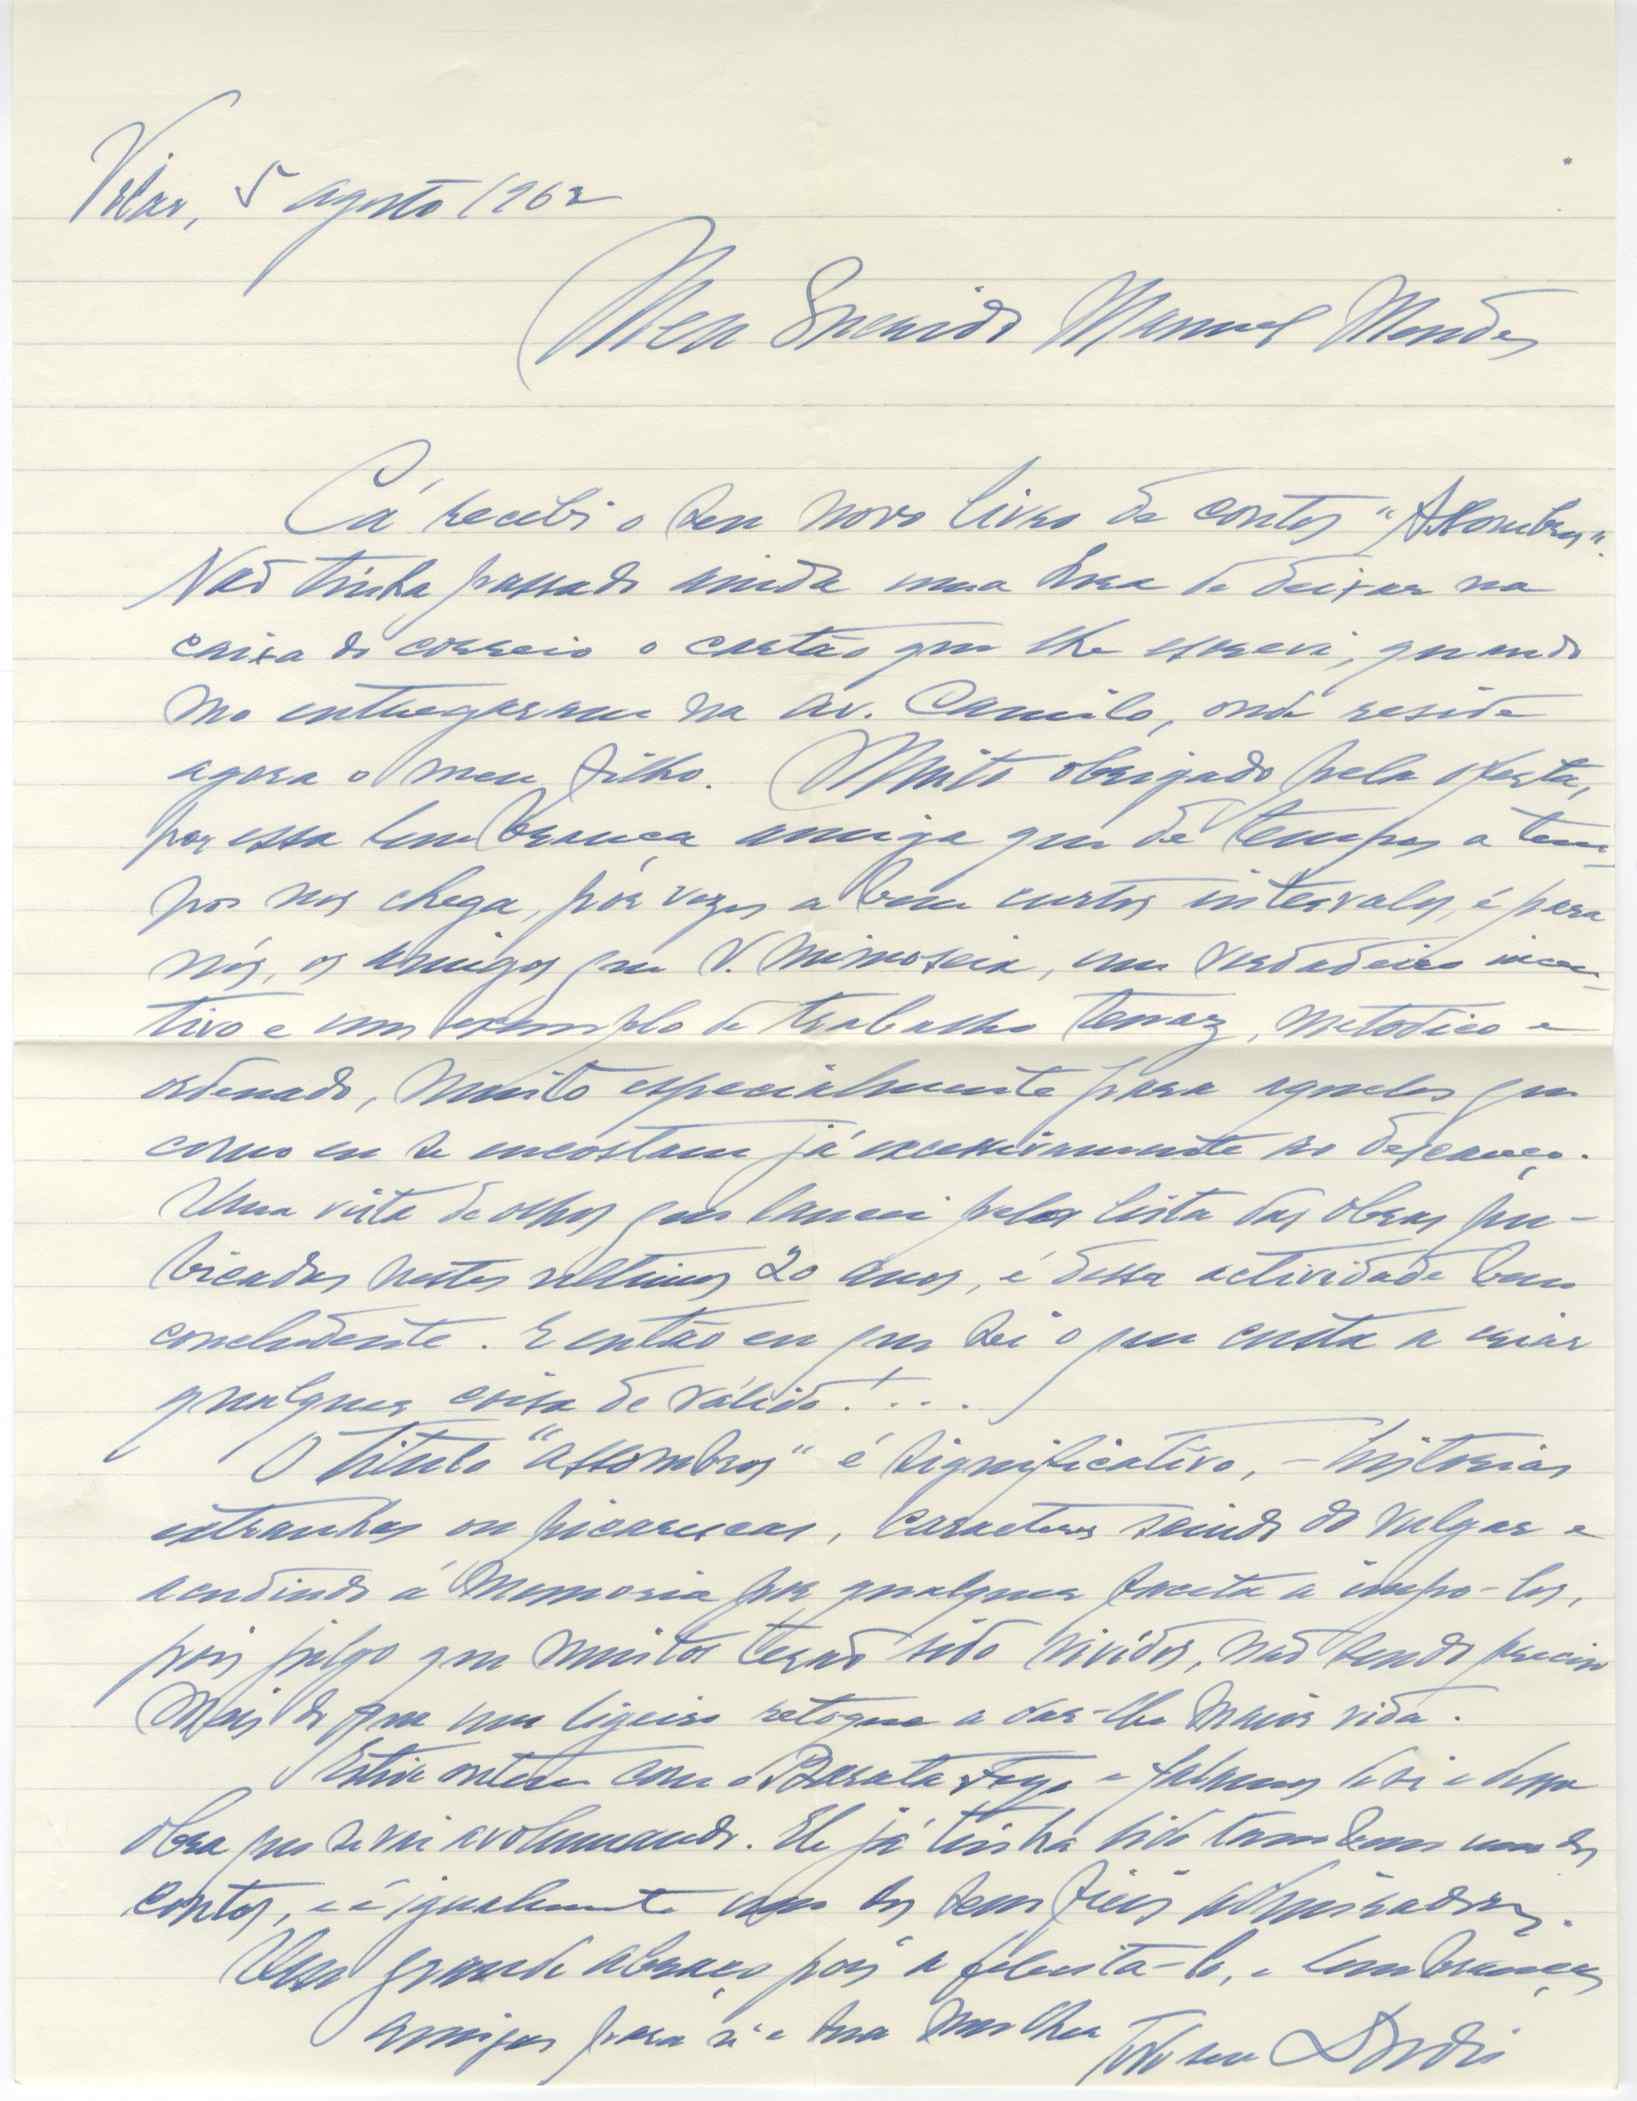 Vilar, 5 agosto 1962
Meu Querido Manuel Mendes
Cá recebi o seu novo livro de contos "Assombros".
Não tinha passado ainda uma hora de deixar na
caixa do correio o cartão que lhe escrevi, quando
mo entregaram na Av. Camilo, onde reside
agora o meu filho. Muito obrigado pela oferta,
por essa lembrança amiga que de tempos a tem-
pos nos chega, por vezes a bem curtos intervalos, é para
nós, os amigos que V. mimoseia, um verdadeiro incen-
tivo e um exemplo de trabalho tenaz, metodico e
ordenado, muito especialmente para aqueles que
como eu se encostam já excessivamente ao descanço.
Uma vista de olhos que lancei pela lista das obras pu-
blicadas nestes ultimos 20 anos, é dessa actividade bem
concludente. E então eu que sei o que custa a criar
qualquer coisa de válido!...
O titulo "assombros" é significativo, – historias
extranhas ou picarescas, caracteres saindo do vulgar e
acudindo á memoria por qualquer faceta a impo-los,
pois julgo que muitos terão sido vividos, não sendo preciso
mais do que um ligeiro retoque a dar-lhe maior vida.
Estive ontem com o Barata Feyo e falamos de si e dessa
obra que se vai avolumando. Ele já tinha lido tambem um dos
contos, e é igualmente um dos seus fieis admiradores.
Um grande abraço, pois a felicitá-lo, e lembranças
amigas para si e sua mulher Todo seu